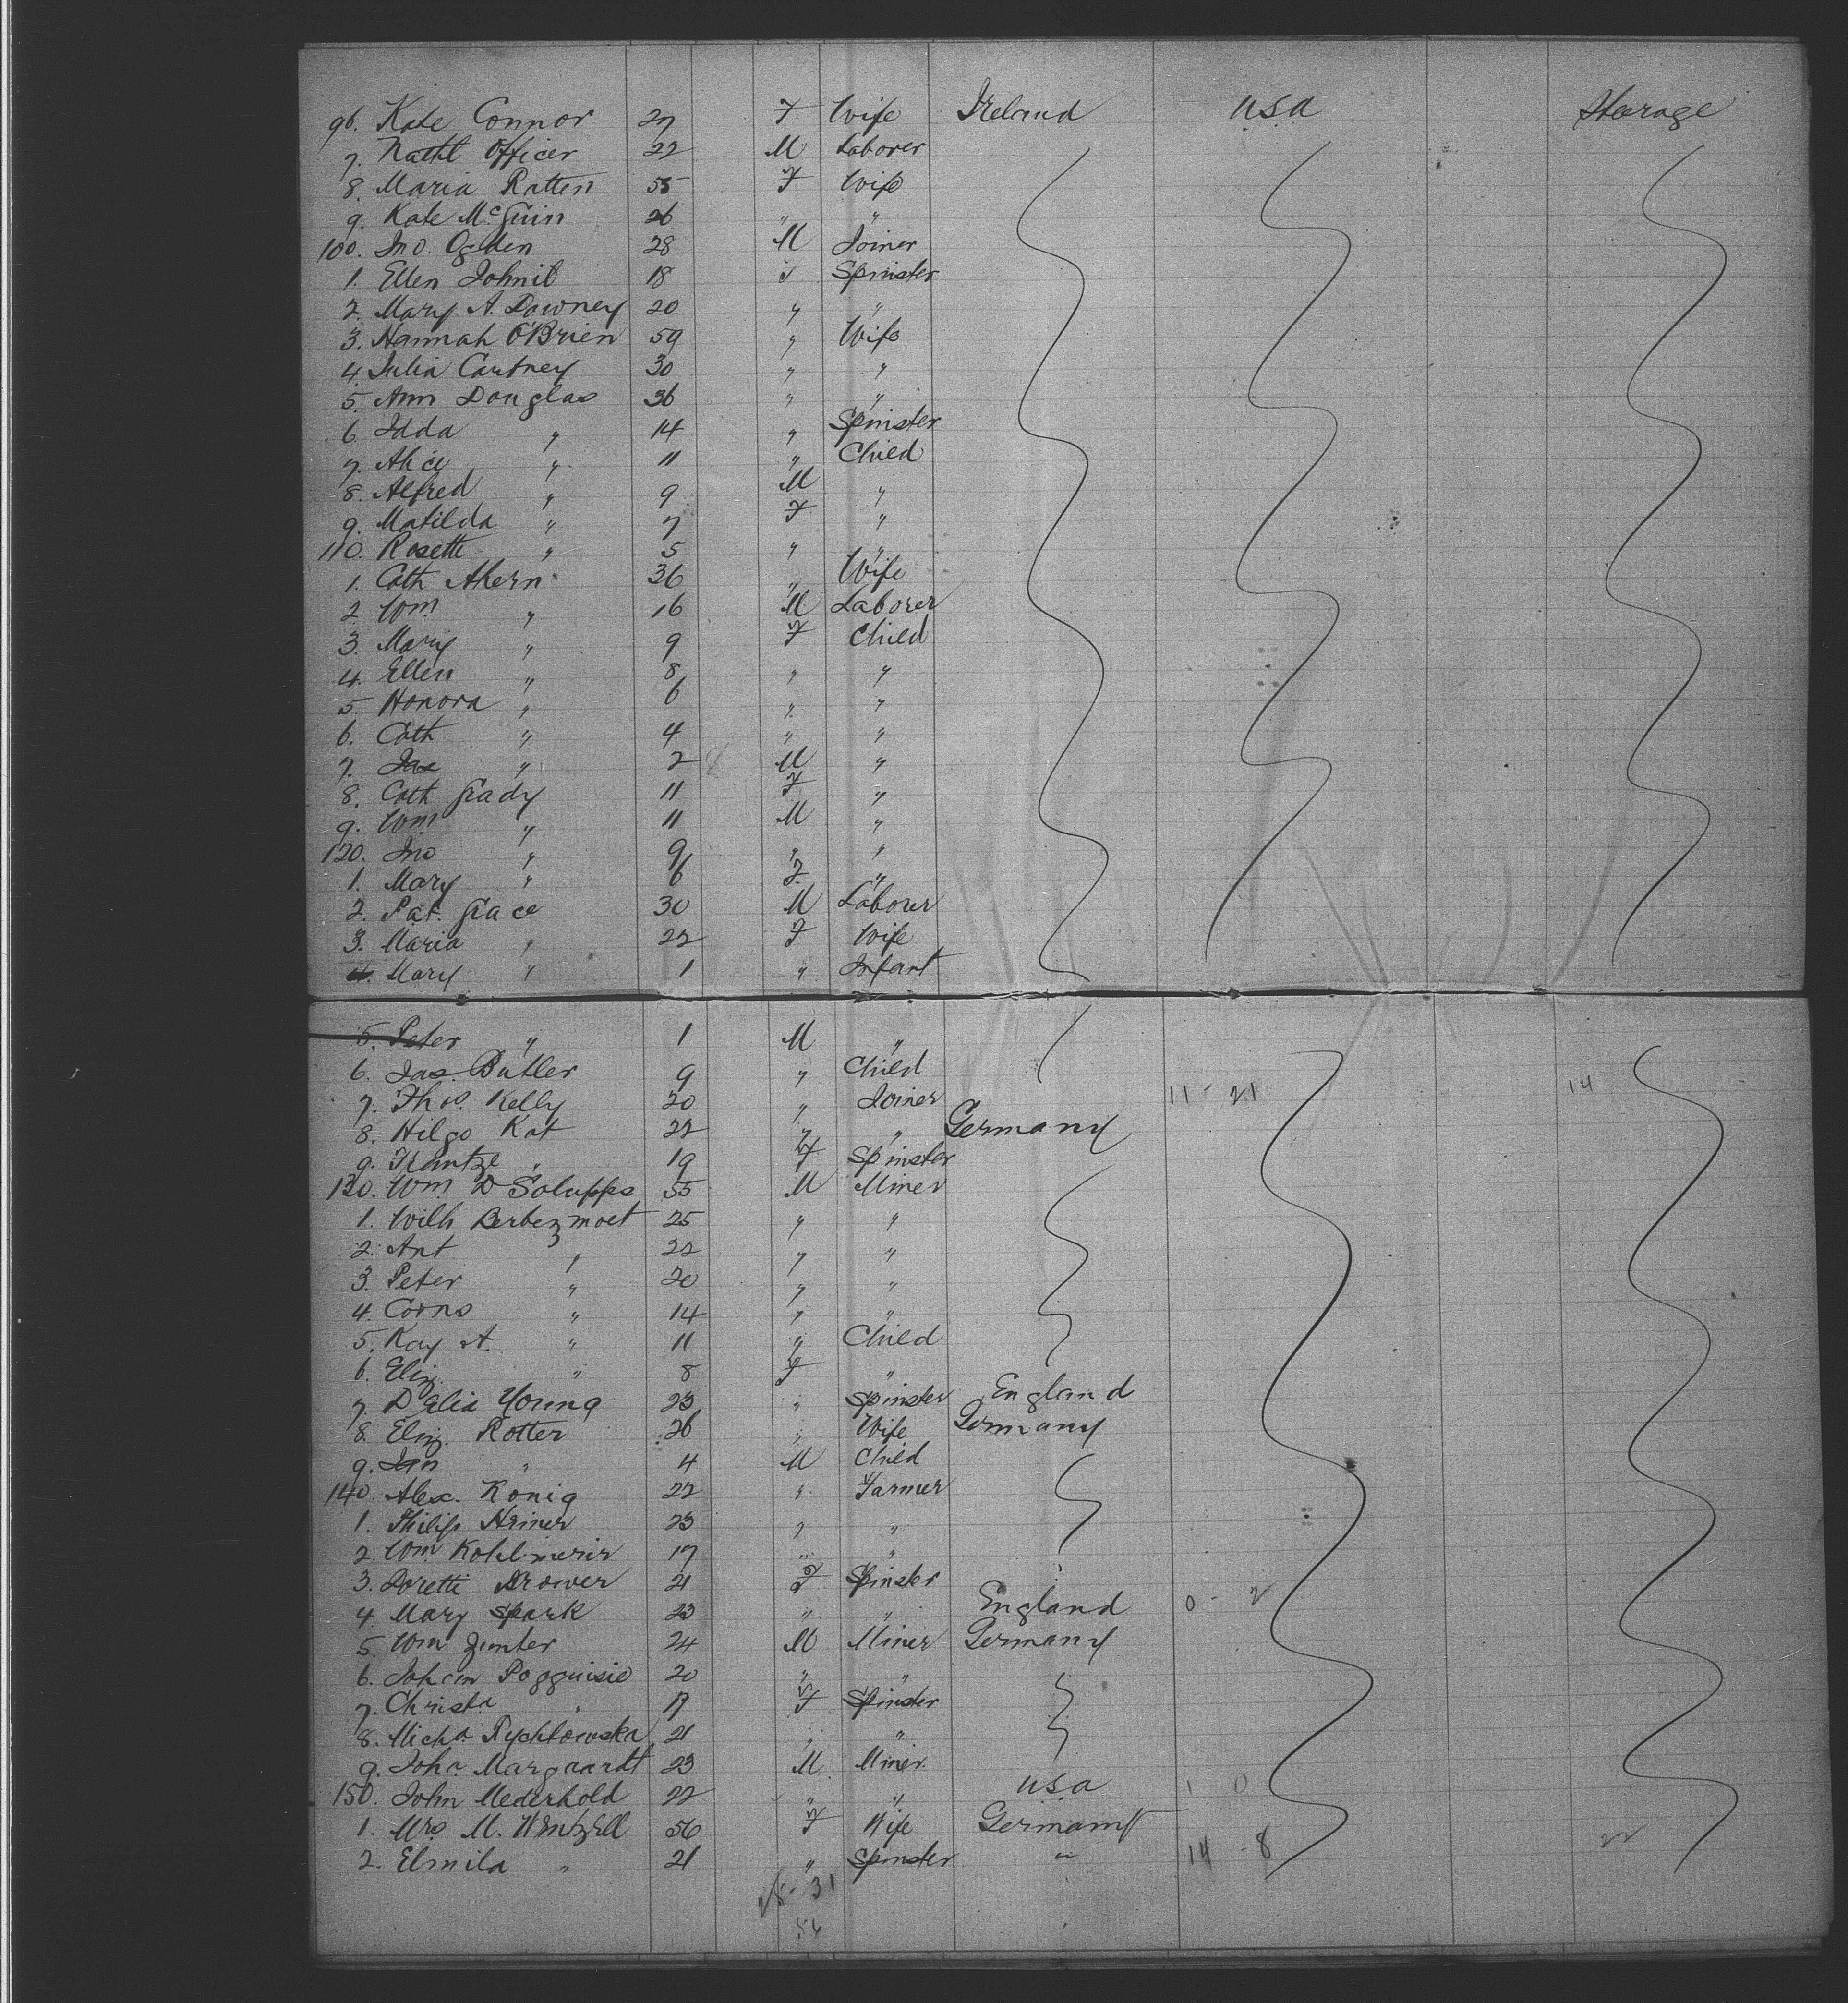 96. Kate Connor 27 F Wife Ireland USA Steerage
7. Nathl Officer 22 M Laborer
8. Maria Ratten 55 F Wife
9. Kate McGuin 26 " "
100. Jno. Ogden 28 M Joiner
1. Ellen 18 F Spinster
2. Mary A. Downey 20 " "
3. Hannah O'Brien 59 " Wife
4. Julia Cartney 30 " "
5. Ann Douglas 36 " "
6. Idda " 14 " Spinster
7. Alice " 11 " Child
8. Alfred " 9 M "
9. Matilda " 7 F "
110. Rosette " 5 " "
1. Cath Ahern 36 " Wife
2. Wm " 16 M Laborer
3. Mary " 9 F Child
4. Ellen " 8 " "
5. Honora " 6 " "
6. Cath " 4 " "
7. Jas " 2 M "
8. Cath Grady 11 F "
9. Wm " 11 M "
120. Jno " 9 " "
1. Mary " 6 F "
2. Pat. Grace 30 M Laborer
3. Maria " 22 F Wife
4. Mary " 1 " Infant
5. Peter " 1 M "
6. Jas. Butler 9 " Child
7. Thos. Kelly 20 " Joiner 11 - 21 14
8. Hilgo Kat 22 " " Germany
9. Frantze " 19 F Spinster
130. Wm D 55 M Miner
1. Wilh Berbezmoet 25 " "
2. Ant " 22 " "
3. Peter " 20 " "
4. Corns " 14 " "
5. Kay A. " 11 " Child
6. Eliz. " 8 F "
7. Delia Young 23 " Spinster England
8. Eliz. Rotter 26 " Wife Germany
9. Jan " 4 M Child
140. Alex. Konig 22 " Farmer
1. Philip Heiner 23 " "
2. Wm 17 " "
3. Dorette Brower 21 F Spinster
4. Mary Spark 23 " " England 0 - 2
5. Wm Zunter 24 M Miner Germany
6. 20 " "
7. Christa " 17 F Spinster
8. Micha Rychlowska 21 " "
9. Joha Margaardt 23 M Miner
150. John Mederhold 22 " " USA 1 0
1. Mrs M. Wentzell 56 F Wife Germany
2. Elmila " 21 " Spinster " 14 - 8 22
25 - 31
56